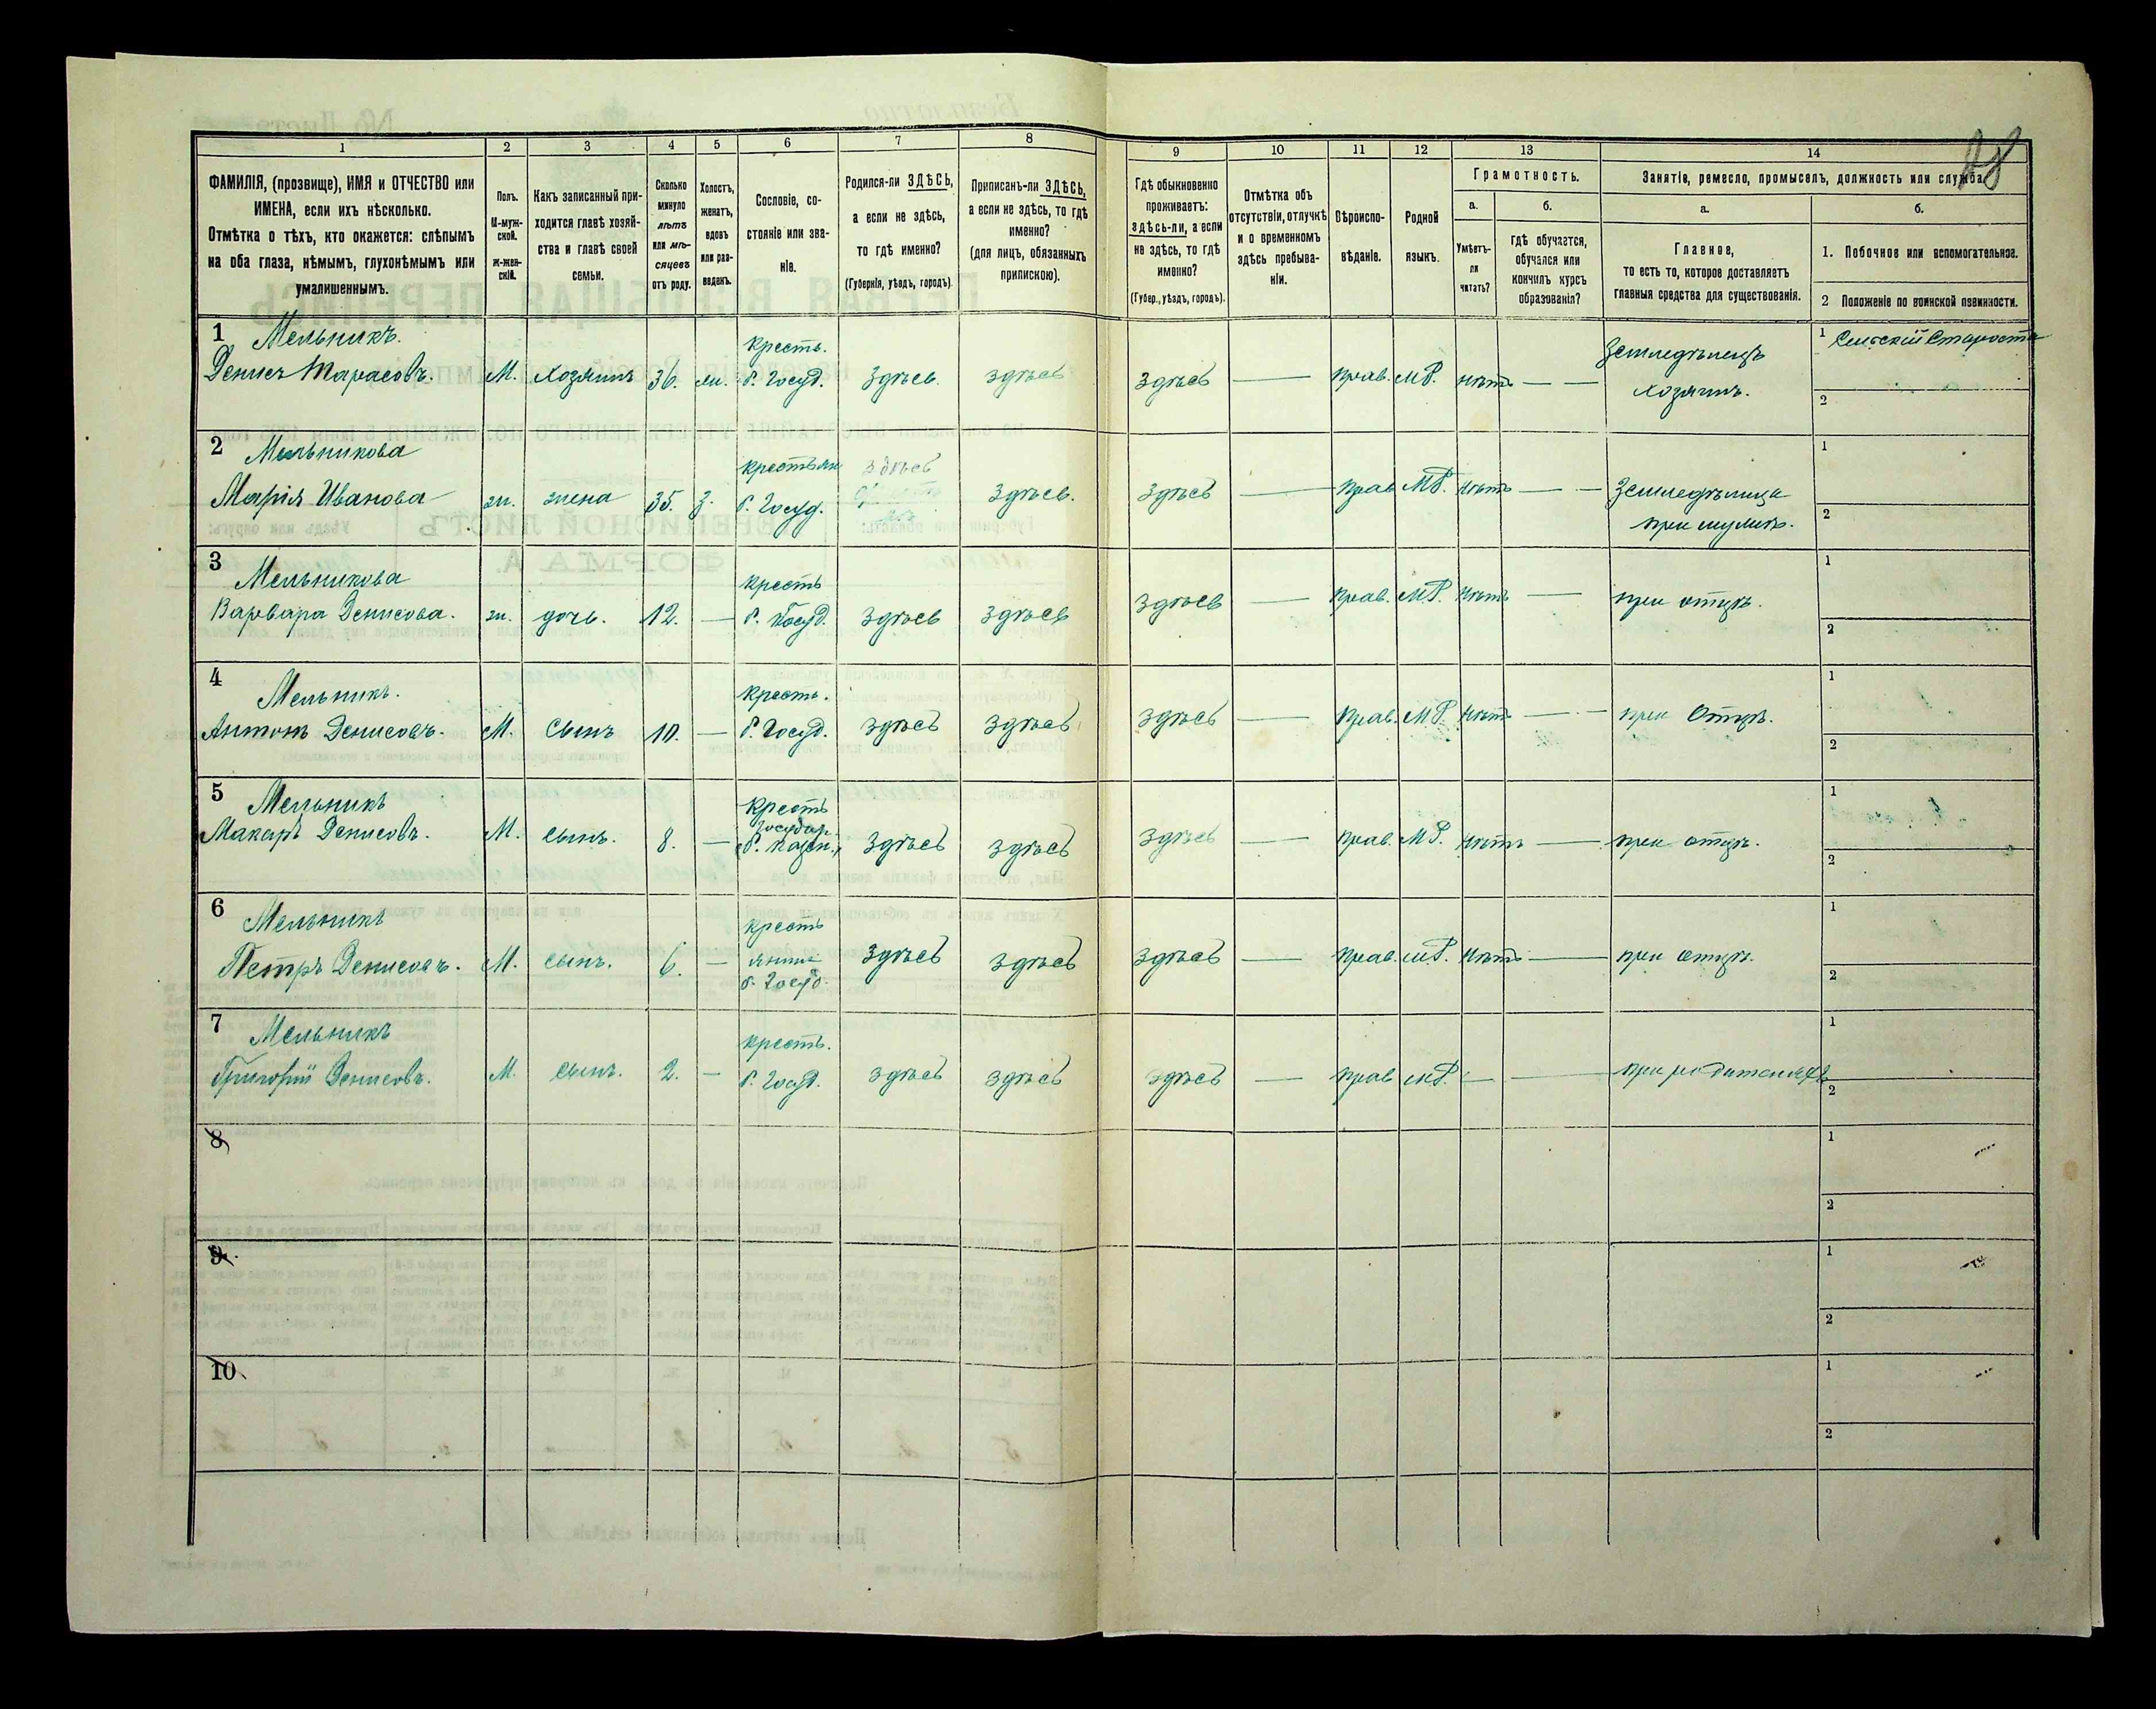 28
1 2 3 4 5 6 7 8 9 10 11 12 13 14
ФАМИЛІЯ, (прозвище), ИМЯ и ОТЧЕСТВО или
ИМЕНА, если ихъ нѣсколько.
Отмѣтка о тѣхъ, кто окажется: слѣпымъ
на оба глаза, нѣмымъ, глухонѣмымъ или
умалишеннымъ.
Полъ.
М-муж-
ской.
ж-жен-
скій.
Какъ записанный при-
ходится главѣ хозяй-
ства и главѣ своей
семьи.
Сколько
минуло
лѣтъ
или мѣ-
сяцевъ
отъ роду.
Холостъ,
женатъ,
вдовъ
или раз-
веденъ.
Сословіе, со-
стояніе или зва-
ніе.
Родился-ли ЗДѢСЬ,
а если не здѣсь,
то гдѣ именно?
(Губернія, уѣздъ, городъ).
Приписанъ-ли ЗДѢСЬ,
а если не здѣсь, то гдѣ
именно?
(для лицъ, обязанныхъ
припискою).
Гдѣ обыкновенно
проживаетъ:
здѣсь-ли, а если
не здѣсь, то гдѣ
именно?
(Губер., уѣздъ, городъ).
Отмѣтка объ
отсутствіи, отлучкѣ
и о временномъ
здѣсь пребыва-
ніи.
Вѣроиспо-
вѣданіе.
Родной
языкъ.
Грамотность.
а.
Умѣетъ-
ли
читать?
б.
гдѣ обучается,
обучался или
кончилъ курсъ
образованія?
Занятіе, ремесло, промыселъ, должность или служба.
а.
Главное,
то есть то, которое доставляетъ
главныя средства для существованія.
б.
1. Побочное или вспомогательное.
2 Положеніе по воинской повинности.
1 Мельникъ. кресть. Земледѣлецъ 1 Сельскій Староста
Денисъ Тарасовъ. М. хозяинъ 36. ж. б. Госуд. здѣсь здѣсь здѣсь — прав. М.Р. нѣтъ — — хозяинъ. 2
2 Мельникова крестьян здѣсь 1
Марія Иванова ж. жена 35. з. б. Госуд. здѣсь. здѣсь — прав М.Р. нѣтъ — — Земледѣлица
при мужѣ. 2
3 Мельникова кресть 1
Варвара Денисова. ж. дочь. 12. — б. Госуд. здѣсь здѣсь здѣсь — прав. М.Р. нѣтъ — при отцѣ. 2
4 Мельникъ. кресть. 1
Антонъ Денисовъ. М. Сынъ 10. — б. Госуд. здѣсь здѣсь здѣсь — прав. М.Р. нѣтъ — — при Отцѣ. 2
5 Мельникъ кресть 1
государ.
Макаръ Денисовъ. М. сынъ. 8. — б. казен. здѣсь здѣсь здѣсь — прав. М.Р. нѣтъ — при отцѣ. 2
6 Мельникъ кресть 1
янинъ
Петръ Денисовъ. М. сынъ. 6. — б. Госуд. здѣсь здѣсь здѣсь — прав. М.Р. нѣтъ — при отцѣ. 2
7 Мельникъ кресть. 1
Григорій Денисовъ. М. сынъ. 2. — б. Госуд. здѣсь здѣсь здѣсь — прав М.Р. — — при родителяхъ 2
8 1
2
9 1
2
10 1
2